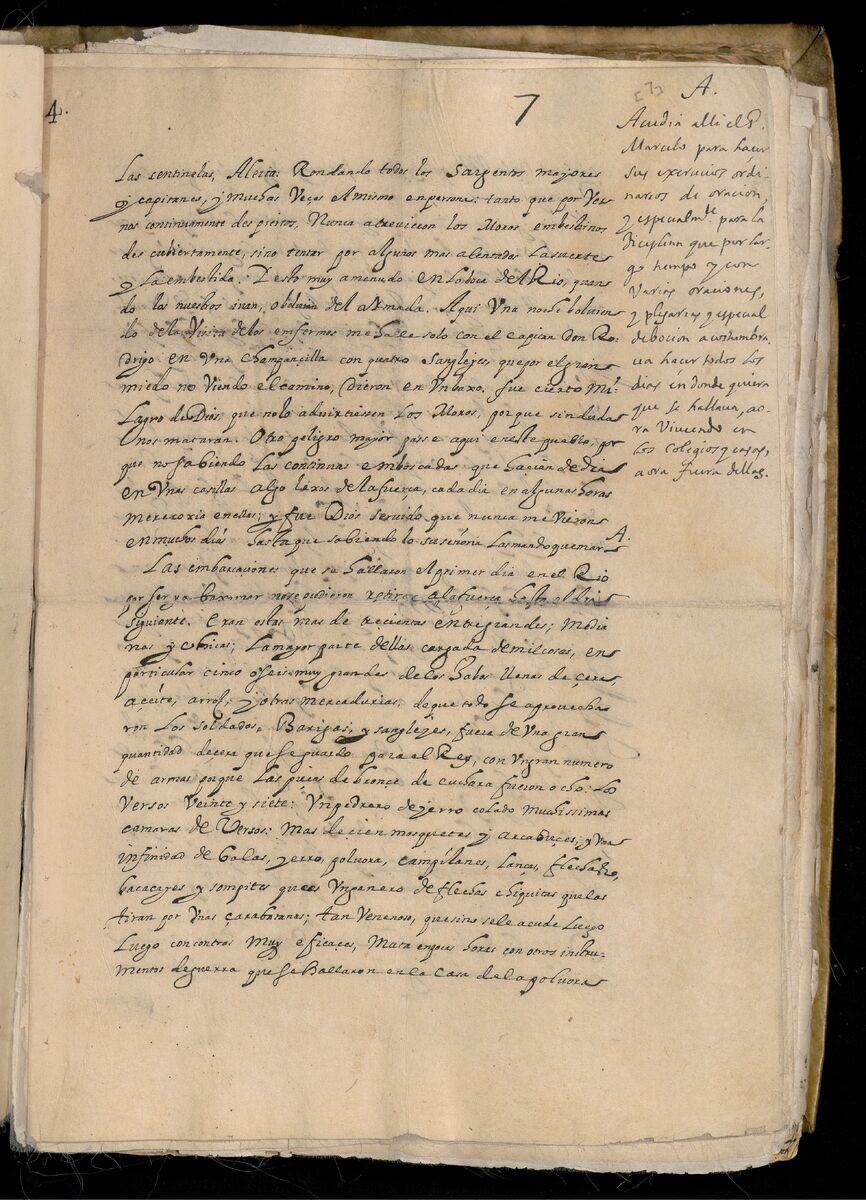 4.
7
[7]
A.
Acudia alli el P.
Marcelo para hacer
sus exercicios ordi-
narios de oracion,
y especialmte. para la
diciplina que por lar-
go tiempo y con
varias oraciones,
y plegarias y especial
debocion acostumbra-
ua hacer todos los
dias en donde quiera
que se hallaua, ao-
ra Viviendo en
los colegios y casas,
aora fuera dellas.
Las sentinelas, Alerta: Rondando todos los Sargentos majores
y capitanes, y muchas Veçes el mismo en persona: tanto que por Ver
nos continuamente despiertos, Nunca atrevieron los Moros embestirnos
descubiertamente, sino tentar por algunos mas alentados la suerte
y la embestida. Y esto muy amenudo en la boca del Rio, quan
do los nuestros ivan, o boluian del Armada. Aqui Vna noche boluien
do de la Visita de los enfermos me halle solo con el capitan Don Ro
drigo en Vna champancilla con quatro Sangleyes, que por el gran
miedo no Viendo el camino, dieron en Vn baxo. fue cierto Mi-
lagro de Dios, que no lo advirtiessen los Moros, porque sin duda
nos mataran. Otro peligro mayor passe aqui en este pueblo, por
que no sabiendo las continuas emboscadas que haçian de dia
en Vnas casillas algo lexos de la fuerça, cada dia en algunas horas
me recoxia en ellas; y fue Dios seruido que nunca me Vieron
en muchos dias hasta que sabiendo lo su señoria las mando quemar A.
Las embarcaçiones que se hallaron el primer dia en el Rio
por ser ya baxa mar no se pudieron retirar a la fuerça hasta el dia
siguiente. Eran estas mas de trecientas entre grandes; Media
nas y chicas; la mayor parte dellas cargada de mil cosas, en
particular cinco o seis muy grandes de los Jabos llenas de çera
açeite, arros, y otras mercadurias. de que todo se aprovecha
ron los soldados, Barigas, y sangleyes, fuera de Vna gran
quantidad de çera que se guardo para el Rey, con Vn gran numero
de armas porque las pieças de bronçe de cuchara fueron ocho. Los
Versos Veinte y siete: Vn pedrero de yerro colado muchissimas
camaras de Versos: Mas de çien mosquetes y Arcabuçes; y Vna
infinidad de balas, yerro, poluora, campilanes, lanças, flechas,
bacacayes y sompites que es Vn genero de flechas chiquitas que las
tiran por Vnas çarabatanas; tan Venenoso, que si no se le acude Luego
Luego con contras Muy eficaçes, Mata en pocas horas con otros instru-
mentos de guerra que se hallaron en la casa de la poluora